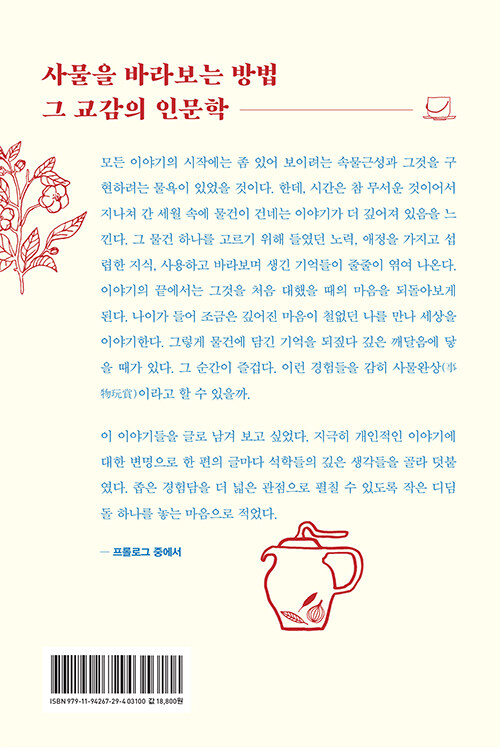 사물을 바라보는 방법
그 교감의 인문학
모든 이야기의 시작에는 좀 있어 보이려는 속물근성과 그것을 구
현하려는 물욕이 있었을 것이다. 한데, 시간은 참 무서운 것이어서
지나쳐 간 세월 속에 물건이 건네는 이야기가 더 깊어져 있음을 느
낀다. 그 물건 하나를 고르기 위해 들였던 노력, 애정을 가지고 섭
렵한 지식, 사용하고 바라보며 생긴 기억들이 줄줄이 엮여 나온다.
이야기의 끝에서는 그것을 처음 대했을 때의 마음을 되돌아보게
된다. 나이가 들어 조금은 깊어진 마음이 철없던 나를 만나 세상을
이야기한다. 그렇게 물건에 담긴 기억을 되짚다 깊은 깨달음에 닿
을 때가 있다. 그 순간이 즐겁다. 이런 경험들을 감히 사물완상(事
物玩賞)이라고 할 수 있을까.
이 이야기들을 글로 남겨 보고 싶었다. 지극히 개인적인 이야기에
대한 변명으로 한 편의 글마다 석학들의 깊은 생각들을 골라 덧붙
였다. 좁은 경험담을 더 넓은 관점으로 펼칠 수 있도록 작은 디딤
돌 하나를 놓는 마음으로 적었다.
— 프롤로그 중에서
ISBN 979-11-94267-29-4 03100 값 18,800원